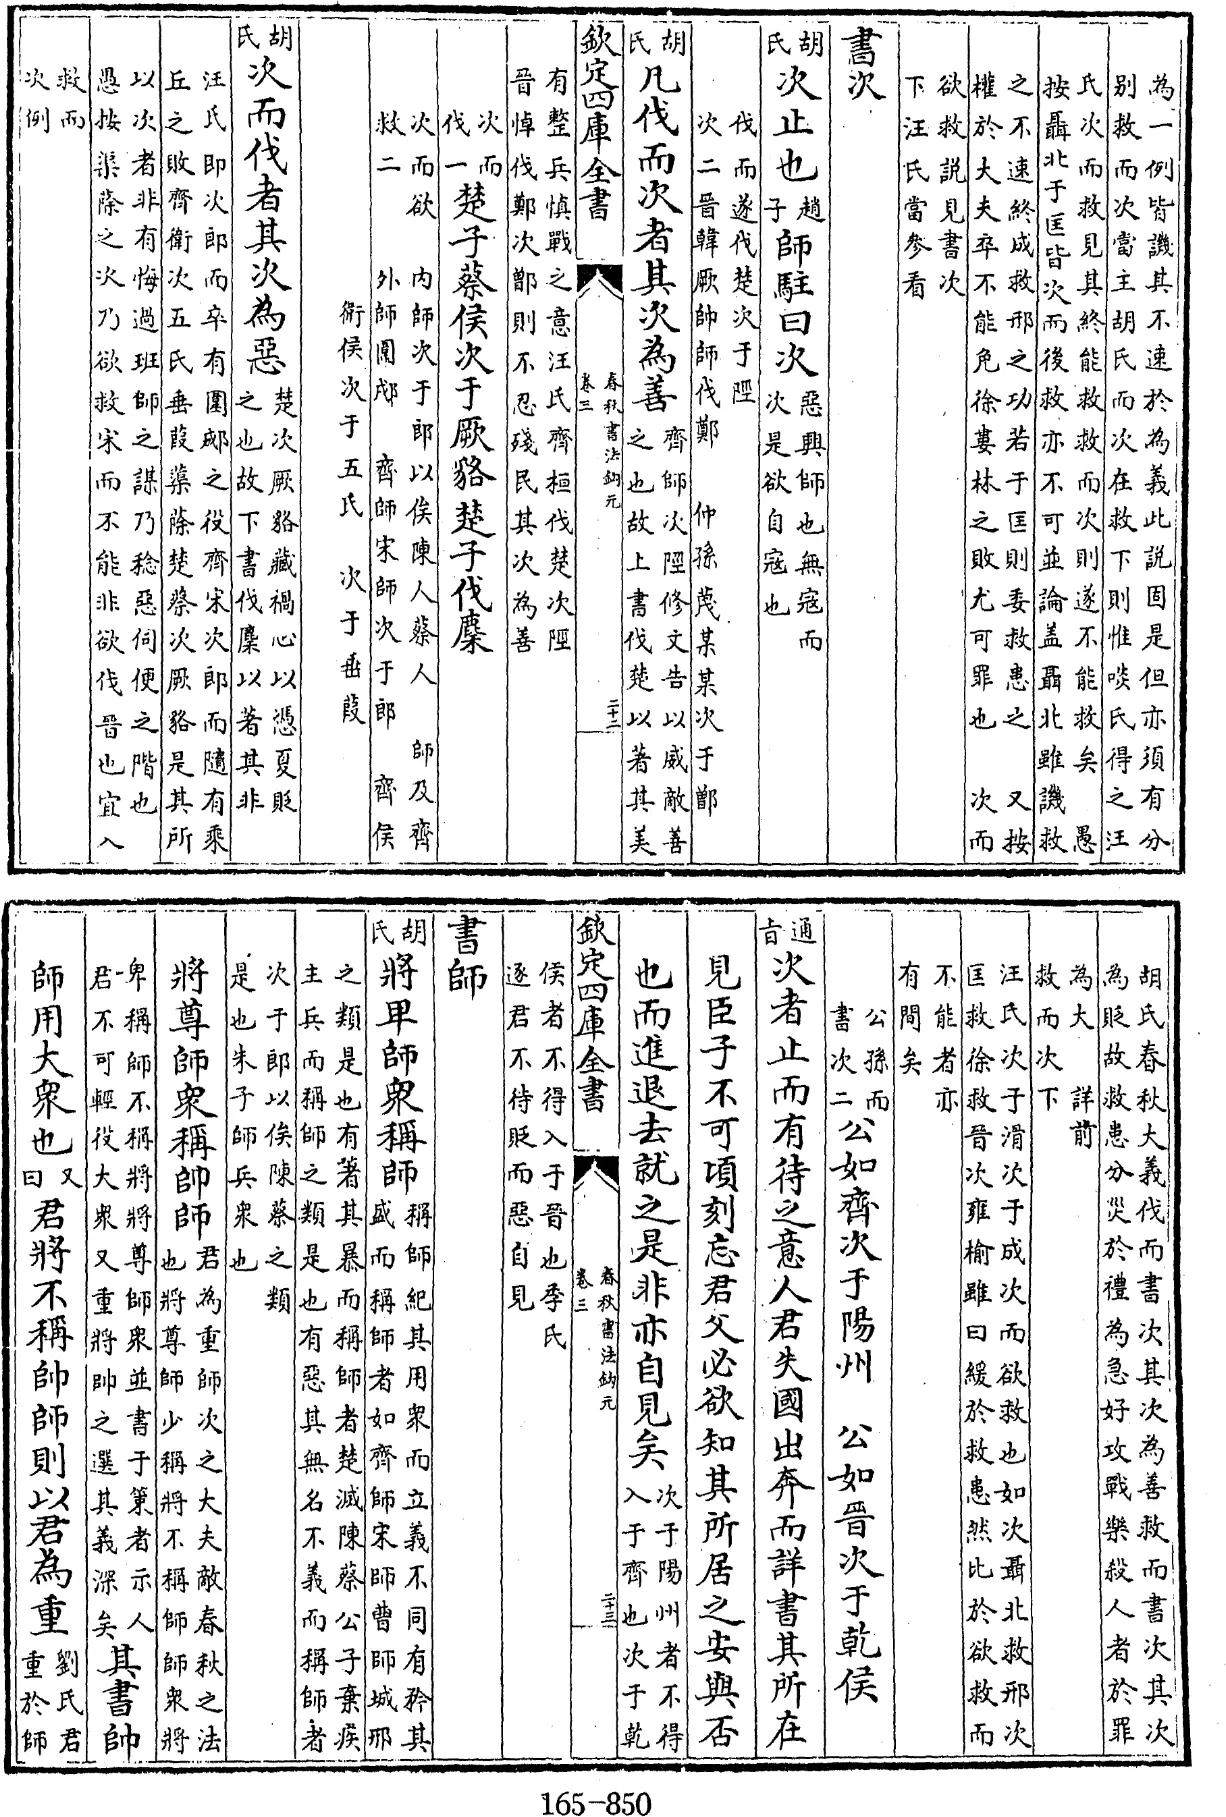 為一例皆譏其不速於為義此說固是但亦須有分
别救而次當主胡氏而次在救下則惟啖氏得之汪
氏次而救見其終能救救而次則遂不能救矣 愚
按聶北于匡皆次而後救亦不可並論盖聶北雖譏救
之不速終成救邢之功若于匡則委救患之 又按
權於大夫卒不能免徐婁林之敗尤可罪也 次而
欲救説見書次
下汪氏當參看
書次
胡氏次止也趙子師駐曰次惡興師也無寇而
次是欲自寇也
伐而遂伐楚次于陘
次二晉韓厥帥師伐鄭 仲孫蔑某某次于鄫
胡氏凡伐而次者其次為善齊師次陘修文告以威敵善
之也故上書伐楚以著其美
欽定四庫全書
春秋書法鉤元
卷三
二十二
有整兵慎戰之意汪氏齊桓伐楚次陘
晉悼伐鄭次鄫則不忍殘民其次為善
次而伐一楚子蔡侯次于厥貉楚子伐麇
次而欲 内師次于郎以俟陳人蔡人 師及齊
救二 外師圍郕 齊師宋師次于郎 齊侯
衛侯次于五氏 次于垂葭
胡氏次而伐者其次為惡楚次厥貉藏禍心以憑夏貶
之也故下書伐麇以著其非
汪氏即次郎而卒有圍郕之役齊宋次郎而隨有乘
丘之敗齊衛次五氏垂葭蕖蒢楚蔡次厥貉是其所
以次者非有悔過班師之謀乃稔惡伺便之階也
愚按渠蒢之次乃欲救宋而不能非欲伐晉也宜入
救而
次例
胡氏春秋大義伐而書次其次為善救而書次其次
為貶故救患分災於禮為急好攻戰樂殺人者於罪
為大 詳前
救而次下
汪氏次于滑次于成次而欲救也如次聶北救邢次
匡救徐救晉次雍榆雖曰緩於救患然比於欲救而
不能者亦
有間矣
公孫而
書次二公如齊次于陽州 公如晉次于乾侯
通旨次者止而有待之意人君失國出奔而詳書其所在
見臣子不可頃刻忘君父必欲知其所居之安與否
也而進退去就之是非亦自見矣次于陽州者不得
入于齊也次于乾
欽定四庫全書
春秋書法鉤元
卷三
二十三
侯者不得入于晉也季氏
逐君不待貶而惡自見
書師
胡氏將卑師衆稱師稱師紀其用衆而立義不同有矜其
盛而稱師者如齊師宋師曹師城邢
之類是也有著其暴而稱師者楚滅陳蔡公子棄疾
主兵而稱師之類是也有惡其無名不義而稱師者
次于郎以俟陳蔡之類
是也朱子師兵衆也
將尊師衆稱帥師君為重師次之大夫敵春秋之法
也將尊師少稱將不稱師師衆將
卑稱師不稱將將尊師衆並書于策者示人
君不可輕役大衆又重將帥之選其義深矣其書帥
師用大衆也又曰君將不稱帥師則以君為重劉氏君
重於師
165-850